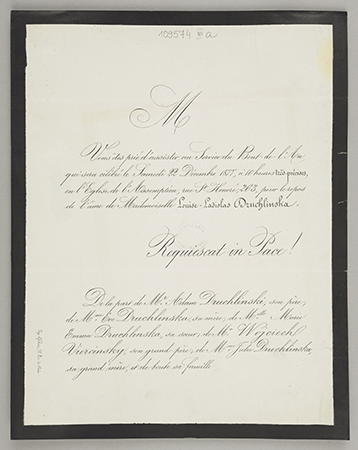 109574 III a
M
Vous êtes prié d'assister au Service du Bout-de-l'An
qui sera célébré le Samedi 22 Décembre 1877, à 10 heures très-précises,
en l'Eglise de l'Assomption, rue St Honoré, 263, pour le repos
de l'âme de Mademoiselle Louise-Ladislas Druchlinska.
Requiescat in Pace!
De la part de Mr. Adam Druchlinski, son père;
de Mme Eve Druchlinska, sa mère; de Mlle Marie
Emma Druchlinska, sa sœur; de Mr Wojciech
Viercinsky, son grand-père; de Mme Julie Druchlinska,
sa grand'mère, et de toute sa famille.